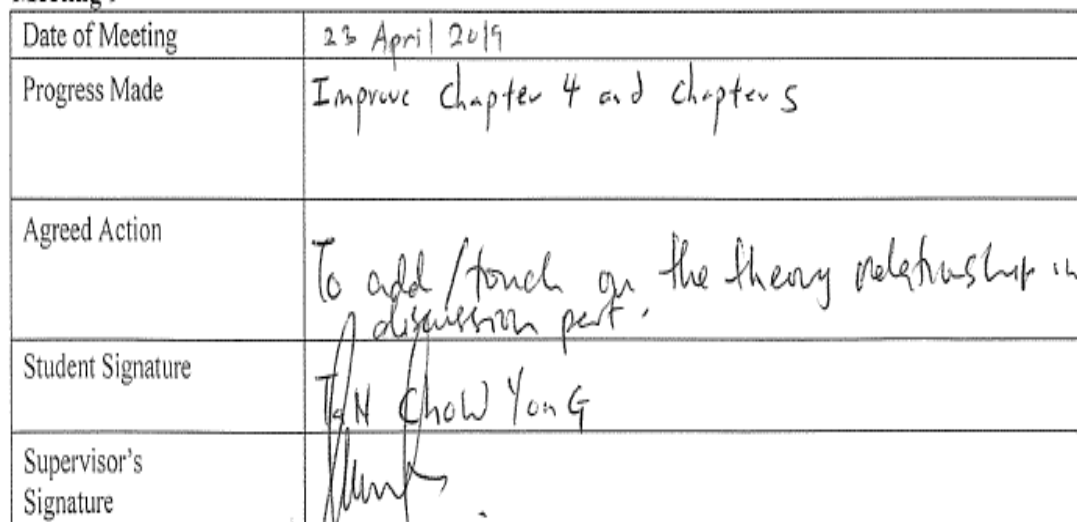 Date of Meeting
23 April 2019
Progress Made
Improve Chapter 4 and Chapter 5
Agreed Action
To add/touch on the theory relationship in
discussion part.
Student Signature
TaN ChoW YonG
Supervisor's
Signature